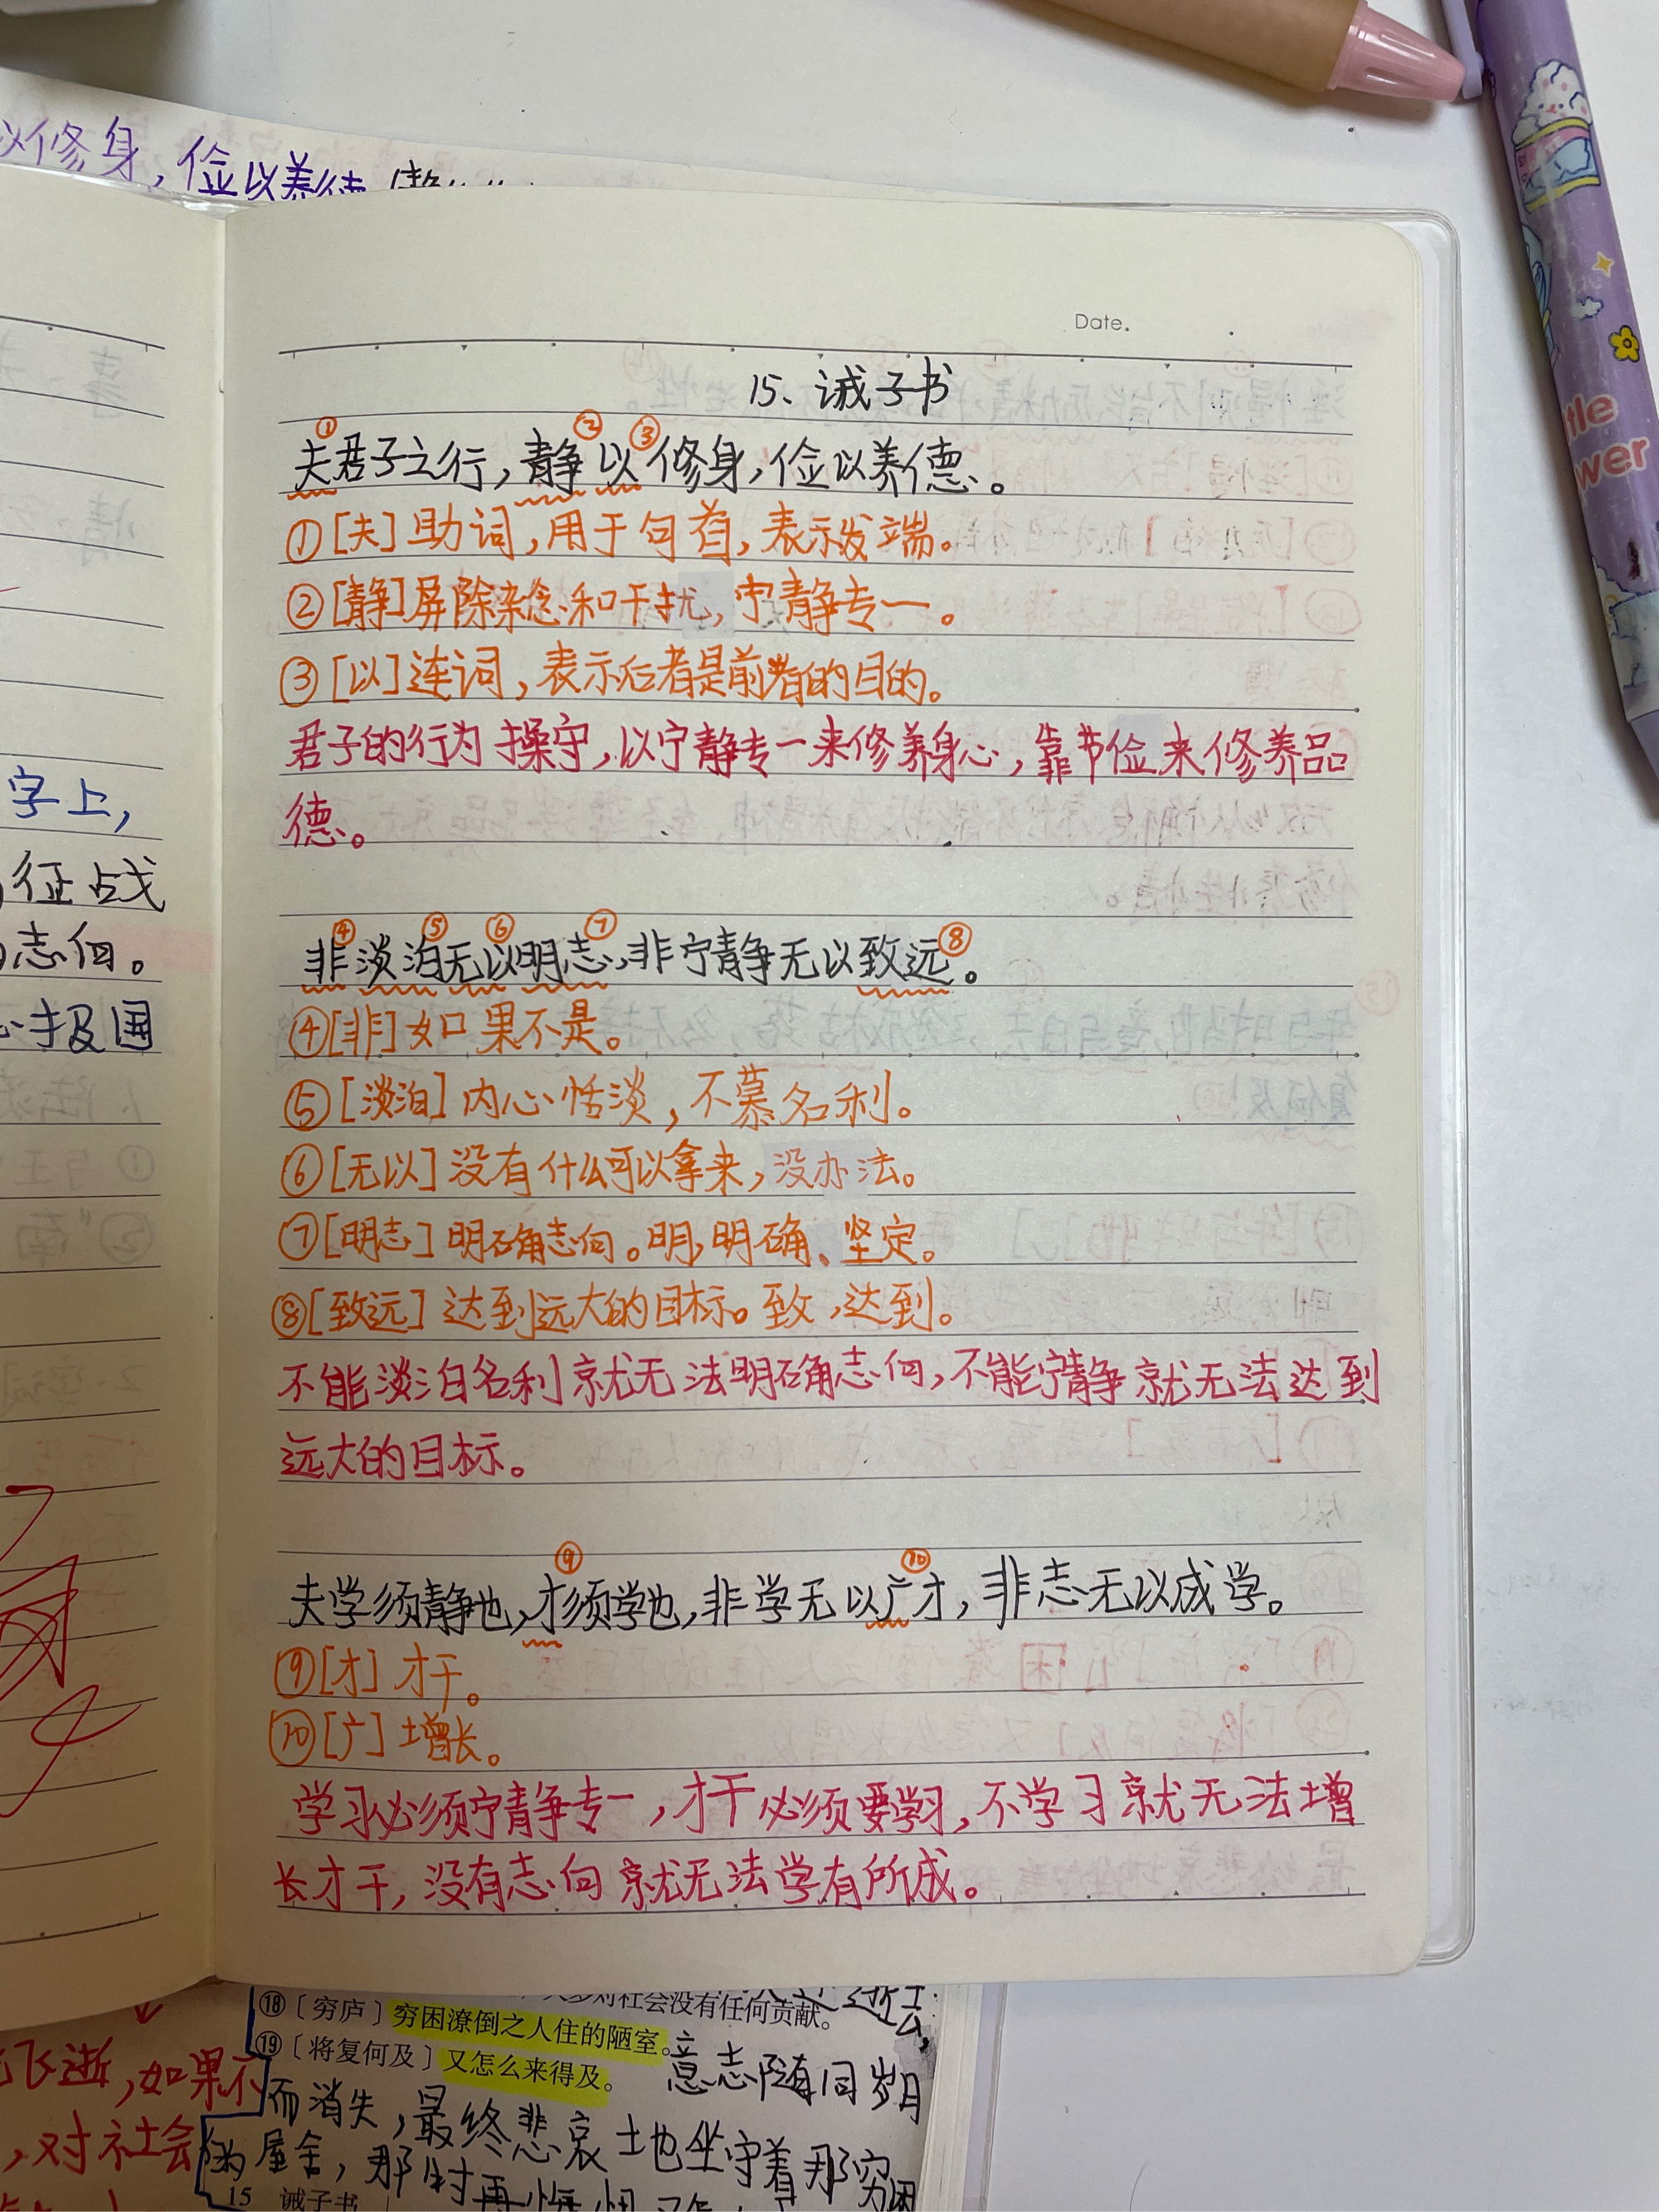 以修身，俭以养德
Date.
15、诫子书
夫①君子之行，静②以③修身，俭以养德。
①[夫]助词，用于句首，表示发端。
②[静]屏除杂念和干扰，宁静专一。
③[以]连词，表示后者是前者的目的。
君子的行为操守，以宁静专一来修养身心，靠节俭来修养品
德。
非④淡泊⑤无以⑥明志⑦，非宁静无以致远⑧。
④[非]如果不是。
⑤[淡泊]内心恬淡，不慕名利。
⑥[无以]没有什么可以拿来，没办法。
⑦[明志]明确志向。明，明确、坚定。
⑧[致远]达到远大的目标。致，达到。
不能淡泊名利就无法明确志向，不能宁静就无法达到
远大的目标。
夫学须静也，才⑨须学也，非学无以广⑩才，非志无以成学。
⑨[才]才干。
⑩[广]增长。
学习必须宁静专一，才干必须要学习，不学习就无法增
长才干，没有志向就无法学有所成。
字上，
征战
志向。
报国
ttle
wer
对社会没有任何贡献。
⑱〔穷庐〕穷困潦倒之人住的陋室。
⑲〔将复何及〕又怎么来得及。
意志随同岁月
而消失，最终悲哀地坐守着那穷困
的屋舍，那时再悔恨
飞逝，如果不
，对社会
15 诫子书